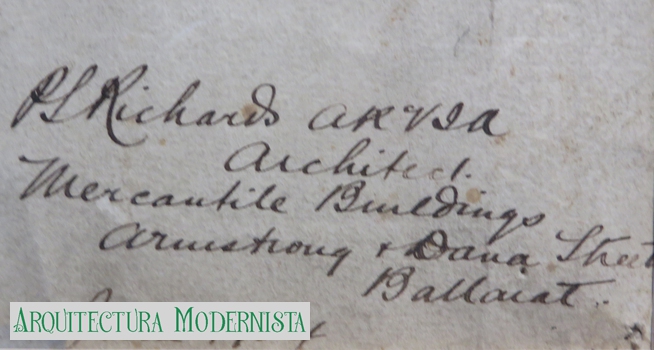 PS Richards ARVIA
Architect.
Mercantile Buildings
Armstrong & Dana Street
Ballarat.
ARQUITECTURA MODERNISTA